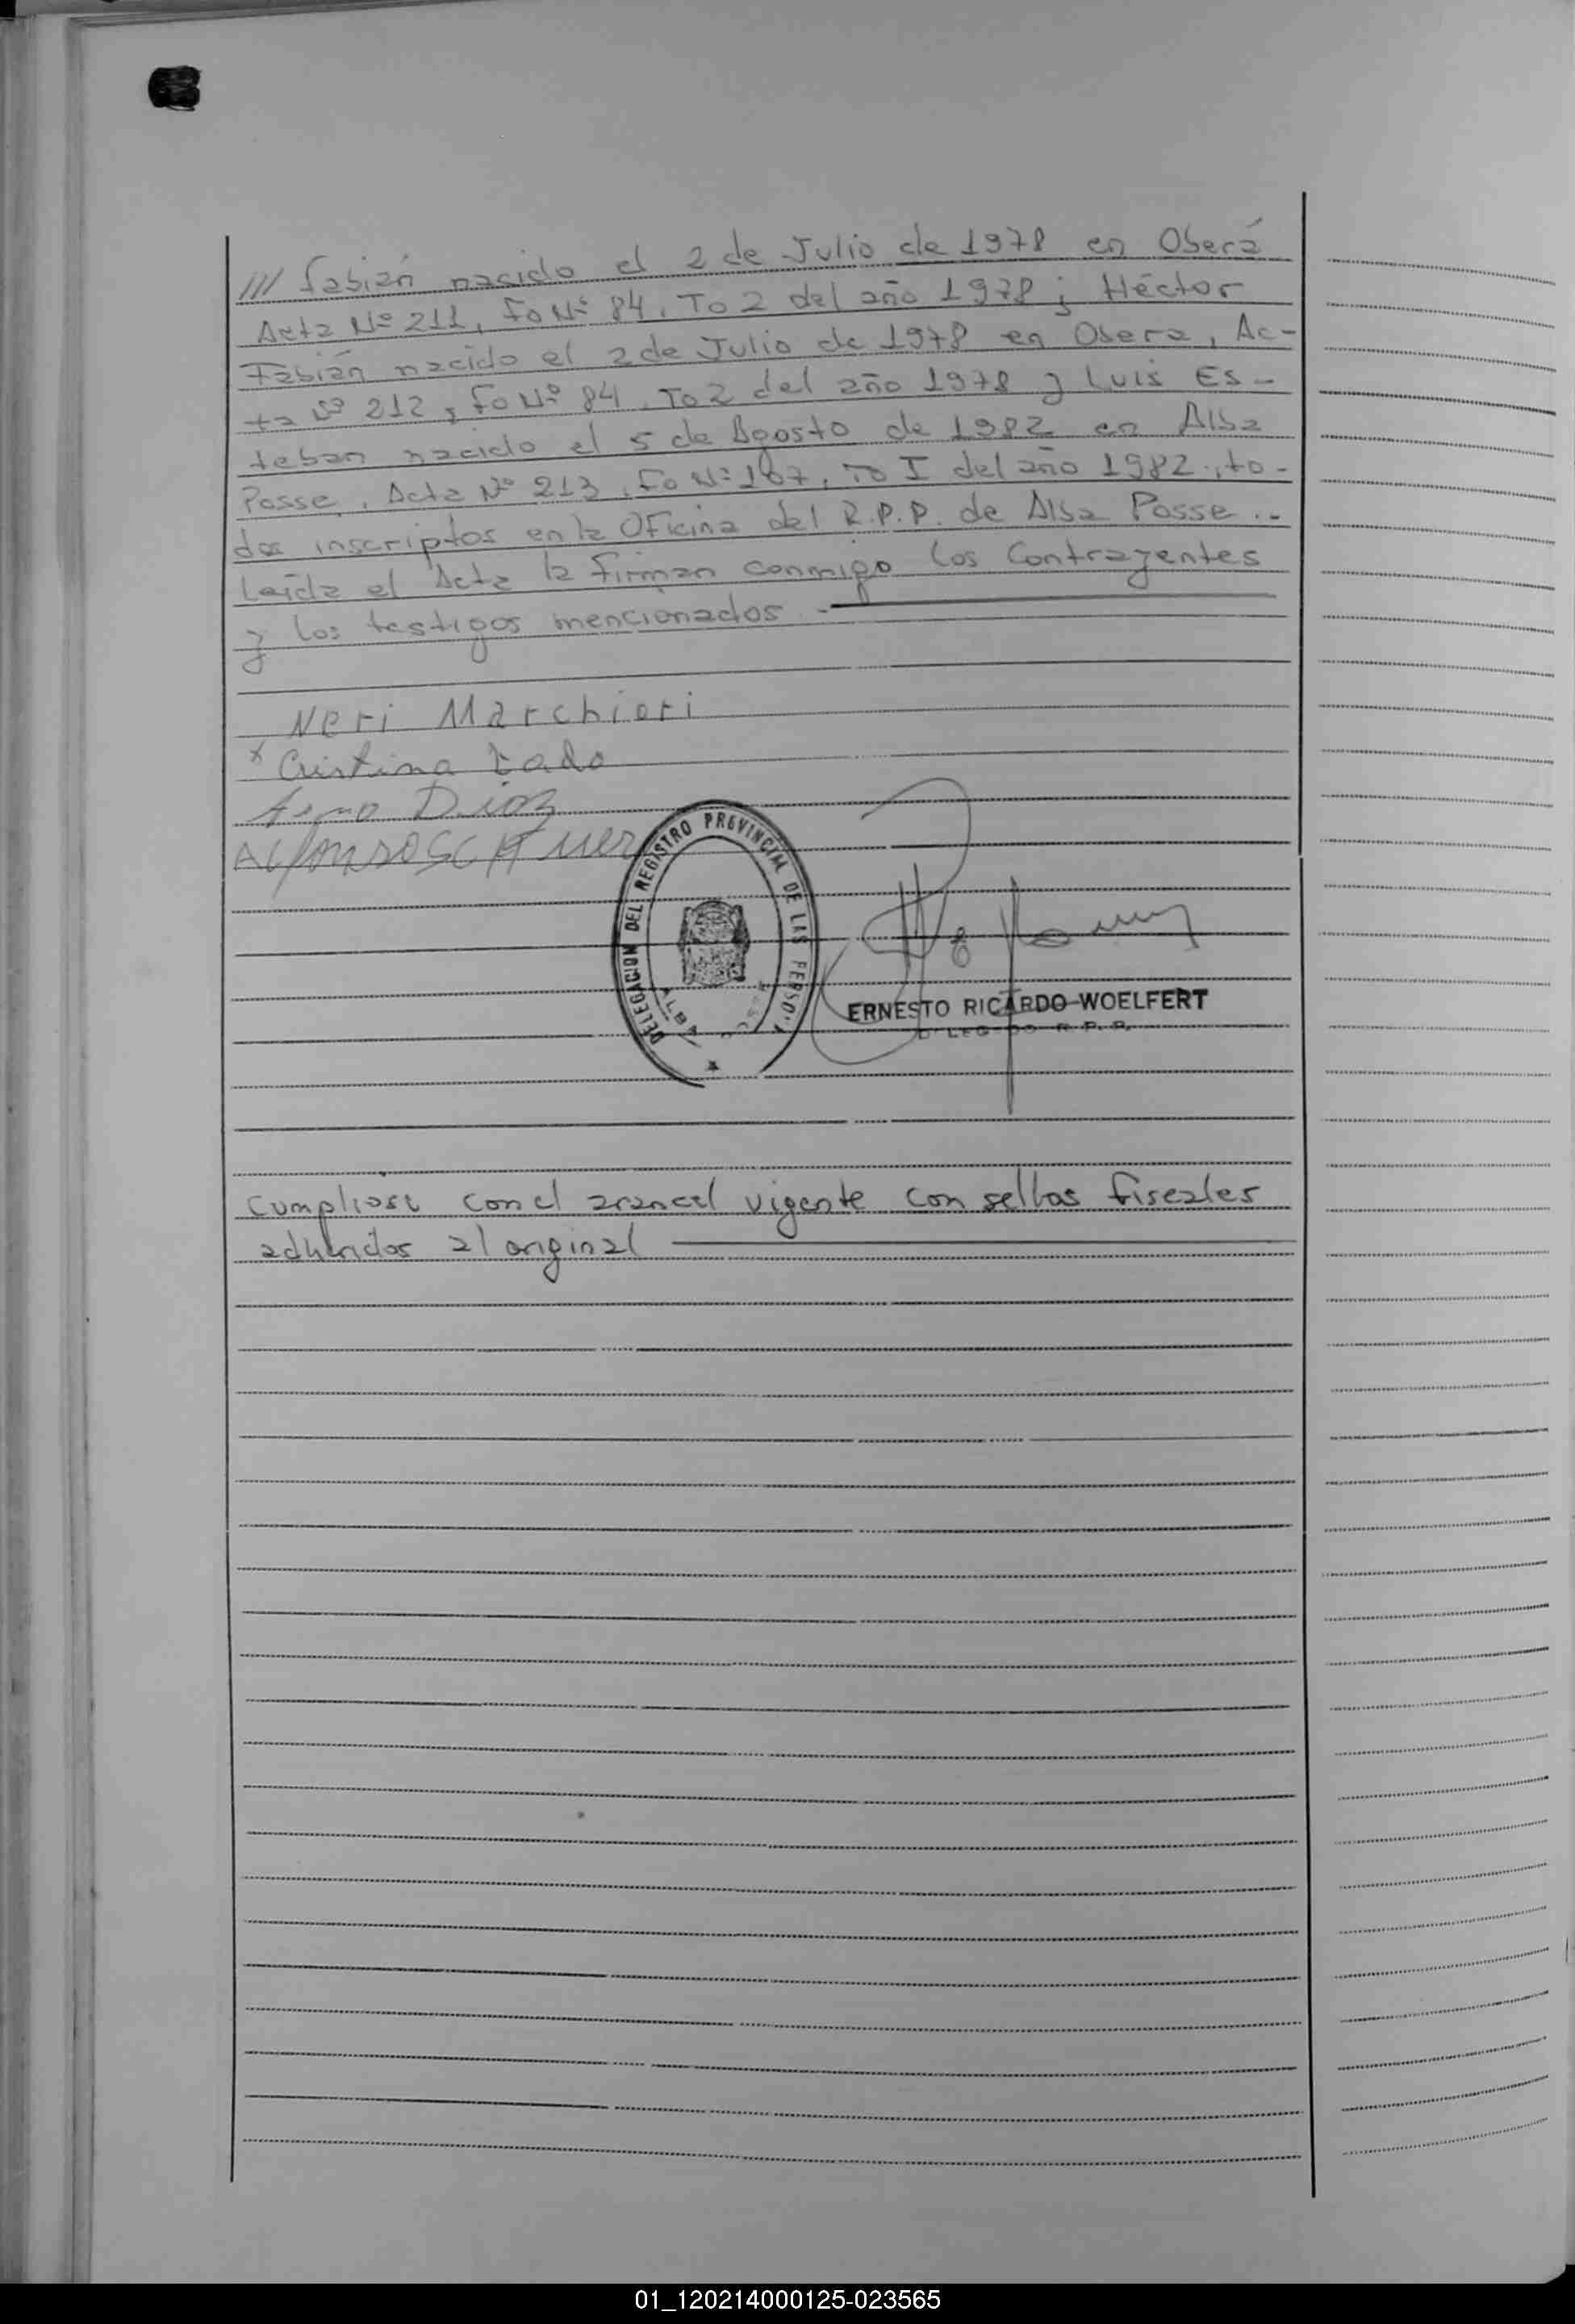 /// Fabián nacido el 2 de Julio de 1978 en Oberá
Acta Nº 211, Fo Nº 84, To 2 del año 1978; Héctor
Fabián nacido el 2 de Julio de 1978 en Obera, Ac-
ta Nº 212, Fo Nº 84, To 2 del año 1978 y Luis Es-
teban nacido el 5 de Agosto de 1982 en Alba
Posse, Acta Nº 213, Fo Nº 107, To I del año 1982, to-
dos inscriptos en la Oficina del R.P.P. de Alba Posse.-
Leída el Acta la firman conmigo los Contrayentes
y los testigos mencionados.-
Neri Marchiori
x Cristina
DELEGACION DEL REGISTRO PROVINCIAL DE LAS PERSO
ALBA
ERNESTO RICARDO WOELFERT
R. P. P.
Cumpliose con el arancel vigente con sellos fiscales
adheridos al original
01_120214000125-023565